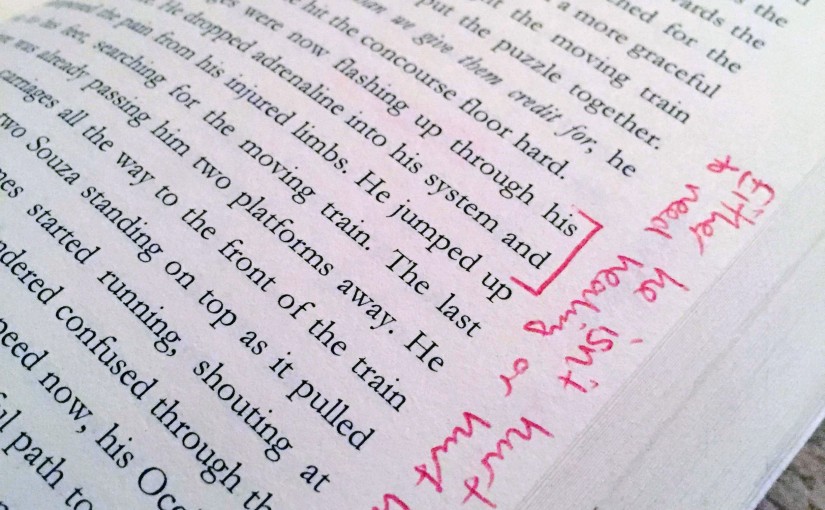 the
the
for the
a more graceful
the moving train
put the puzzle together.
we give them credit for, he
hit the concourse floor hard.
were now flashing up through his
He dropped adrenaline into his system and
the pain from his injured limbs. He jumped up
to his feet, searching for the moving train. The last
was already passing him two platforms away. He
carriages all the way to the front of the train
two Souza standing on top as it pulled
started running, shouting at
confused through
now, his
path to
Either he isn't hurt
& need healing or hurt